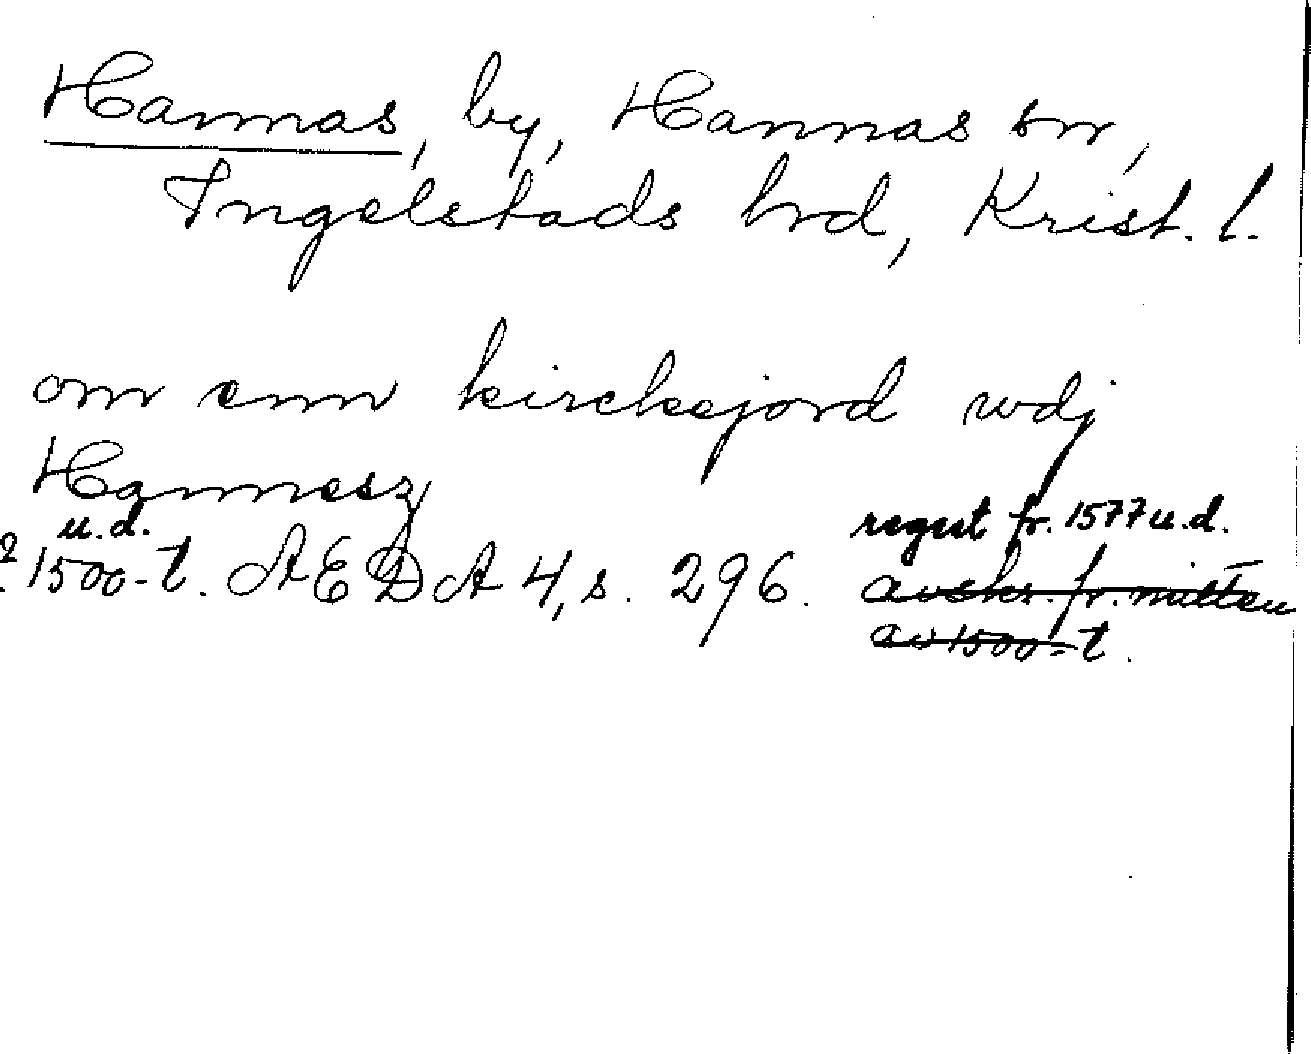 Hannas, by, Hannas sn,
Ingelstads hrd, Krist. l.
om enn kirckejord wdj
Hannesz
u.d.
? 1500-t. AEDA 4, s. 296.
regest fr. 1577 u.d.
avskr. fr. mitten
av 1500-t.